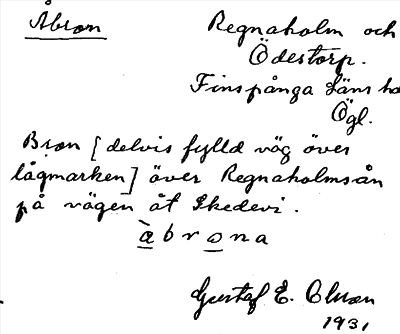 Åbron
Regnaholm och
Ödestorp.
Finspånga läns hd
Ögl.
Bron [delvis fylld väg över
lågmarken] över Regnaholmsån
på vägen åt Skedevi.
àbrona
Gustaf E. Olsson
1931